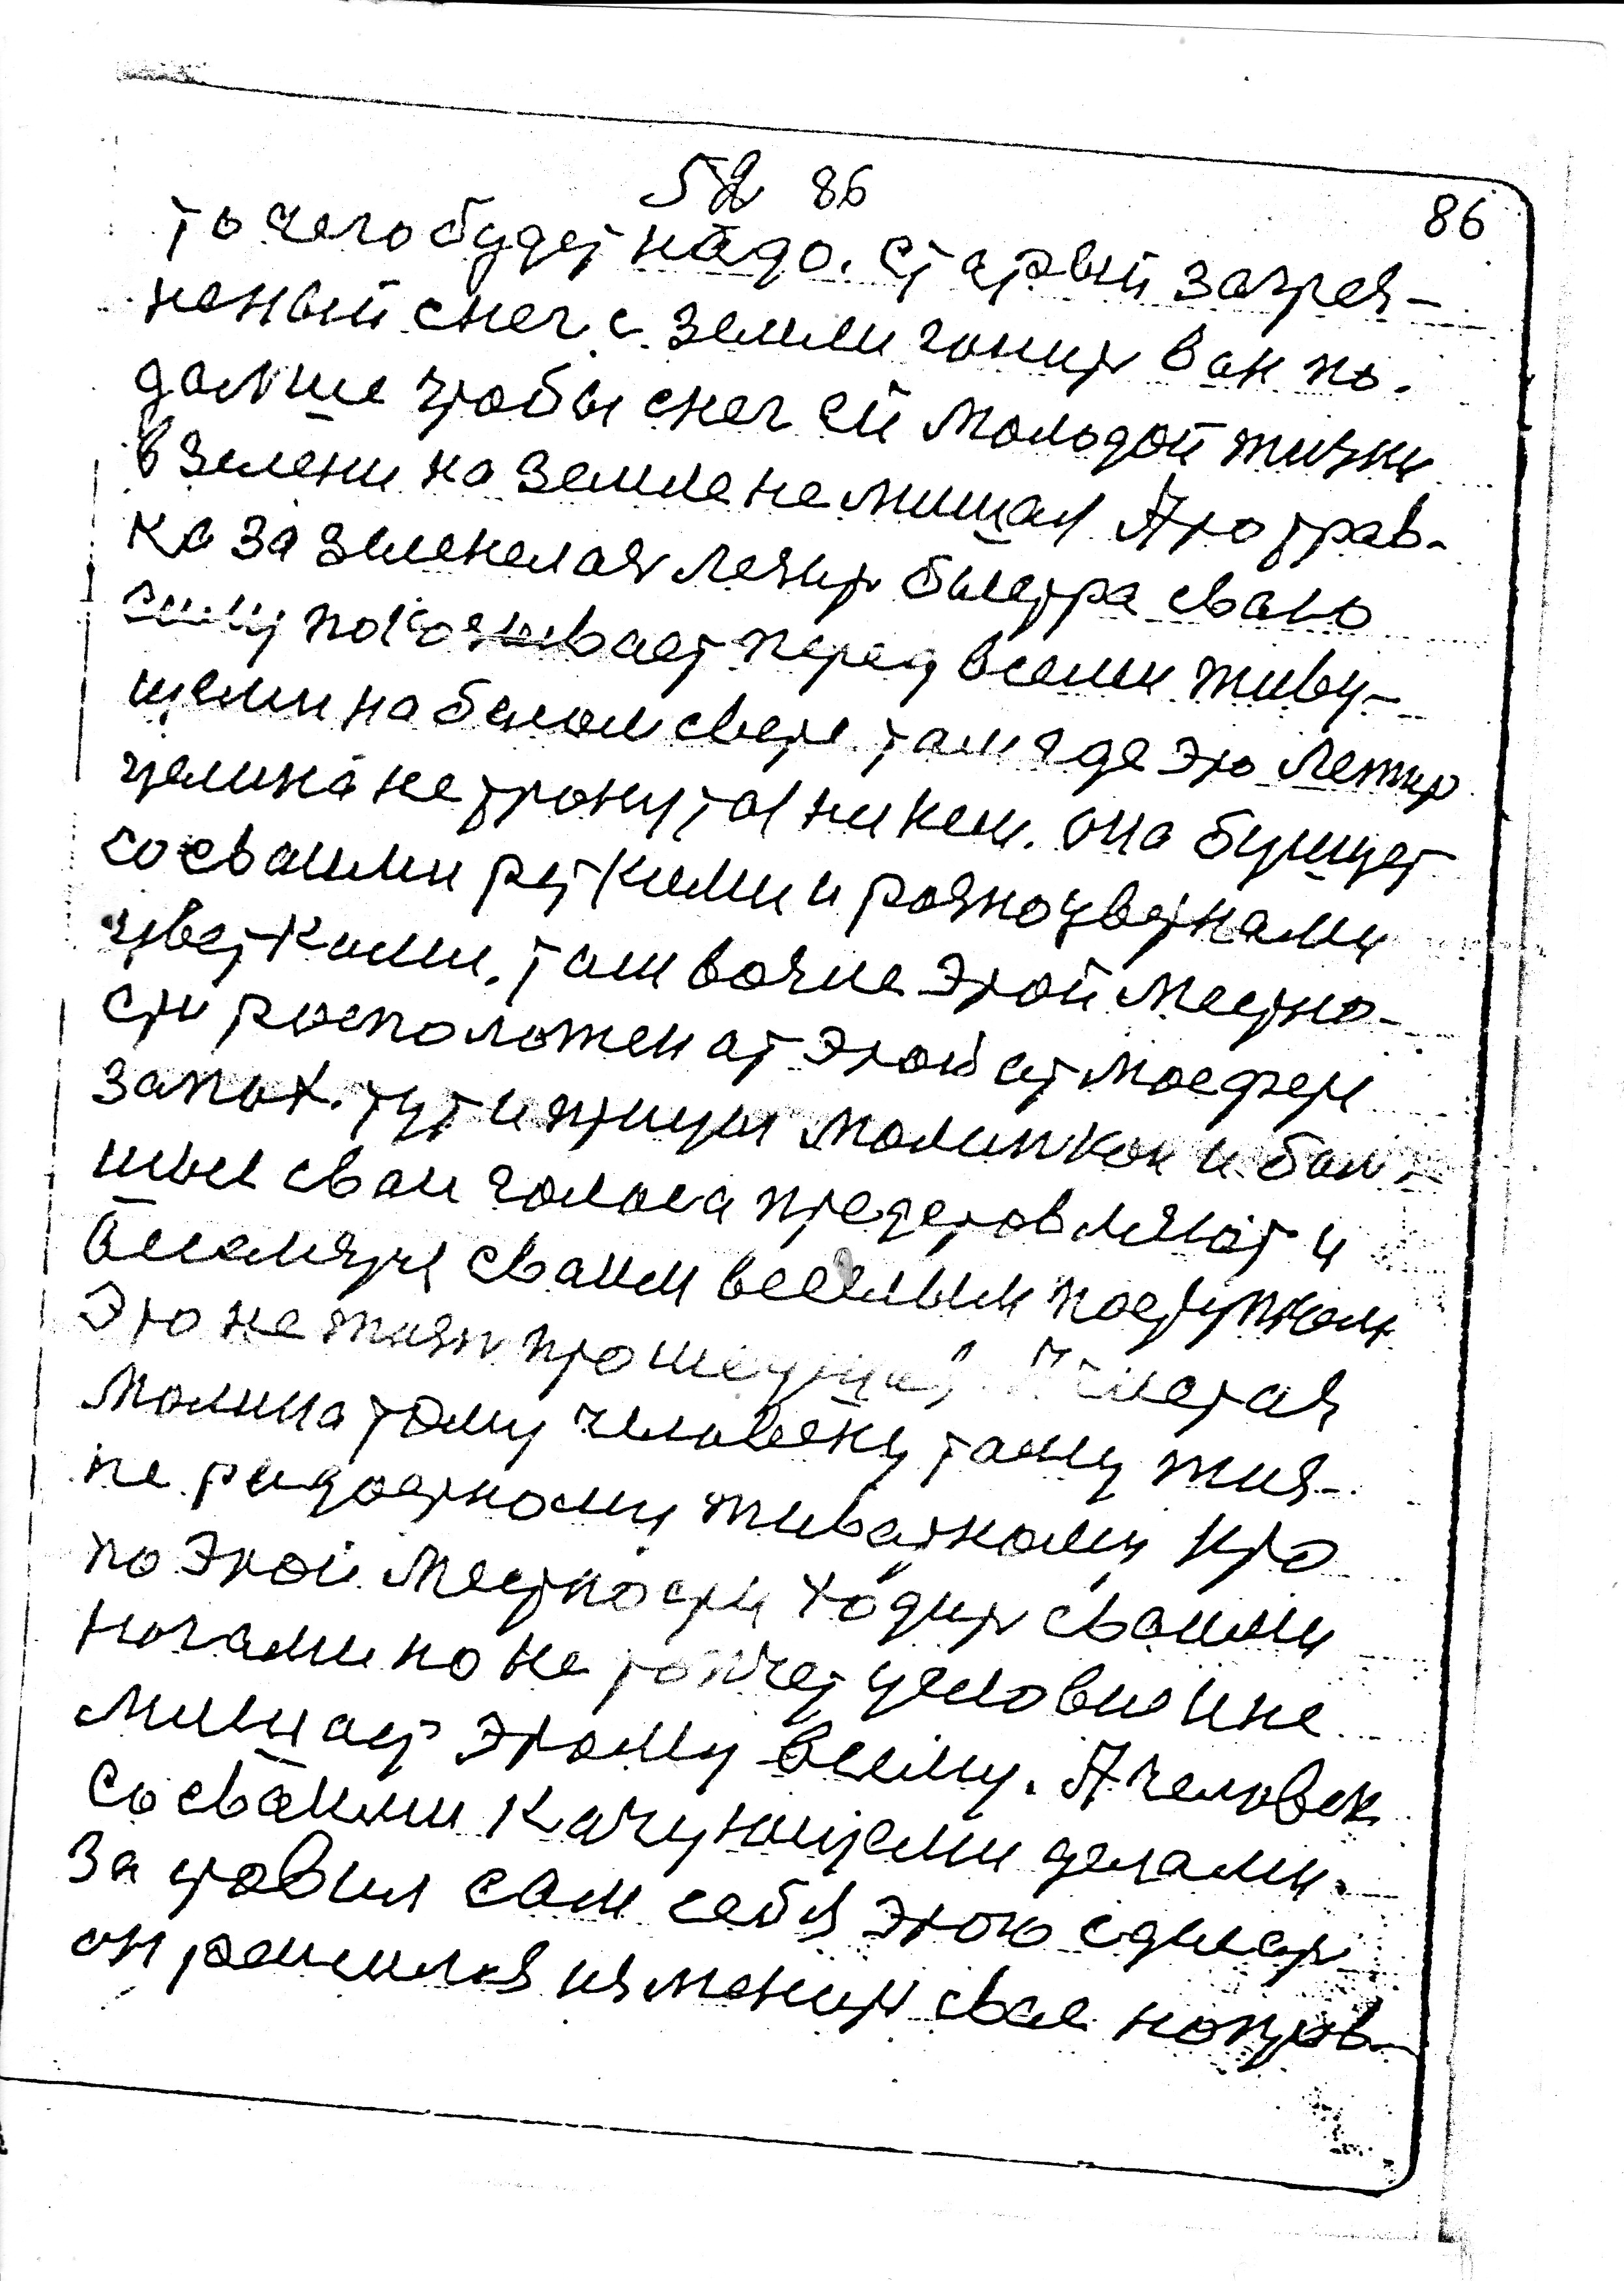 52 86
86
то чего будет надо. Старый загрез-
неный снег с земли гонит вон по.
дальше чтобы снег ей молодой жизни
в зелени на земле не мишал А то трав-
ка за зеленелая лезит быстра сваю
силу показывает перед всеми живу-
щеми на белом свете. там где это лежит
целина не тронутая ни кем. она бушует
со сваими реткими и разноцветнами
цветками. там возле этой местно-
сти росположен от этой атмосфери
запах. тут и птицы маленькои и боль-
шыи сваи голоса представляют и
сваим веселым поступком
Это не жизнь А чистая
малина тому человеку таму жиз-
не радостному животному кто
по этой местности ходит сваими
ногами но не топчет условию и не
мишает этому всему. А человек
со сваими кочующеми делами.
За ставил сам себя этою сделат
он решился изменит свае напров-